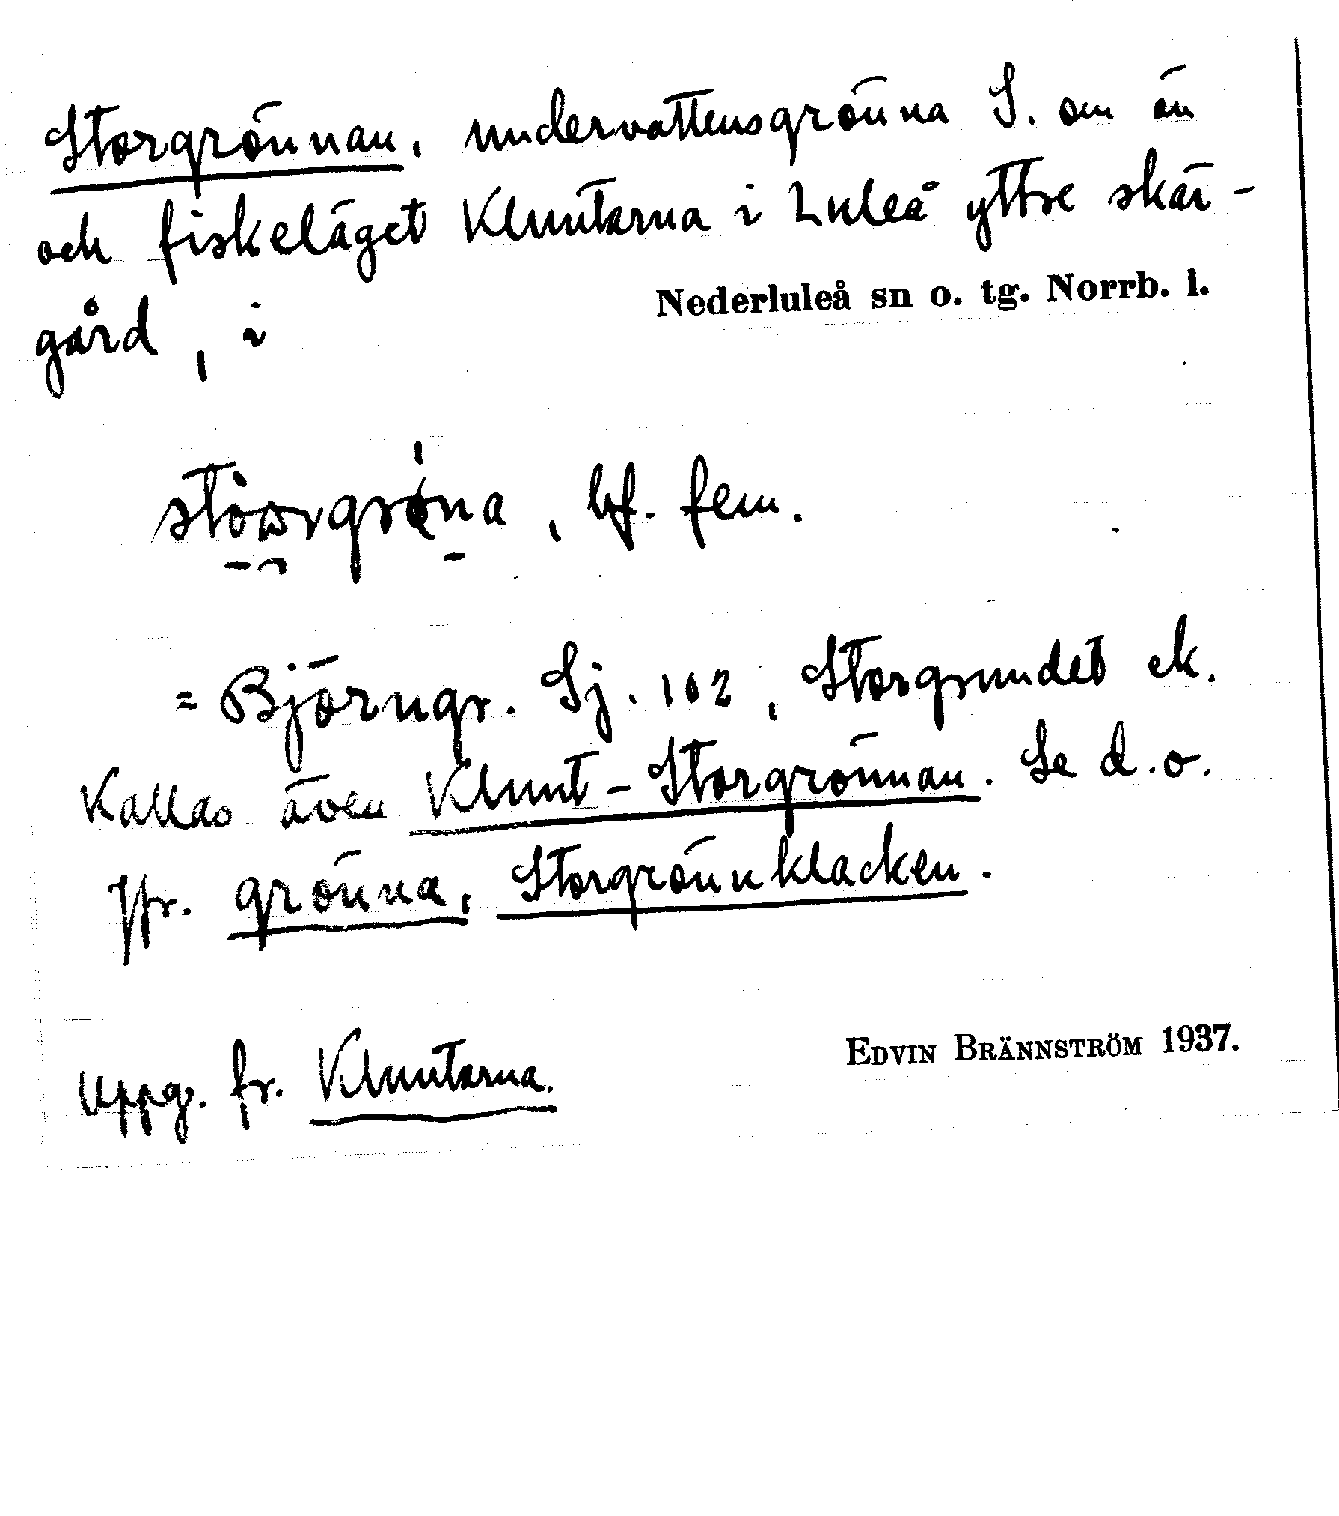 Storgrönnan, undervattensgrönna S. om ön
och fiskeläget Kluntarna i Luleå yttre skär-
gård, i
Nederluleå sn o. tg. Norrb. l.
bf. fem.
= Björngr. Sj. 102, Storgrundet ek.
Kallas även Klunt-Storgrönnan. Se d.o.
Jfr. grönna, Storgrönnklacken.
Uppg. fr. Kluntarna.
EDVIN BRÄNNSTRÖM 1937.